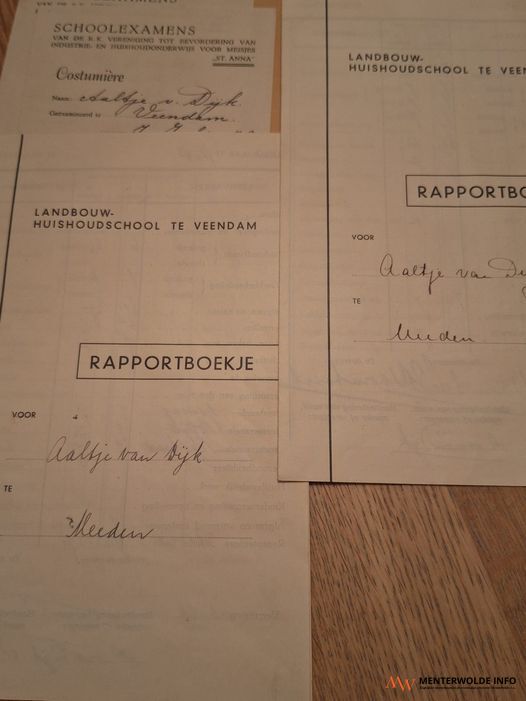 SCHOOLEXAMENS
VAN DE R.K. VERENIGING TOT BEVORDERING VAN
INDUSTRIE- EN HUISHOUDONDERWIJS VOOR MEISJES
„ST. ANNA"
Costumière
Naam: Aaltje v. Dijk.
Geëxamineerd te Veendam.
LANDBOUW-
HUISHOUDSCHOOL TE VEENDAM
RAPPORTBOEKJE
VOOR
Aaltje van Dijk
TE
Meeden
LANDBOUW-
HUISHOUDSCHOOL TE VEEN
RAPPORTBO
VOOR
Aaltje van
TE
Meeden
MW MENTERWOLDE INFO